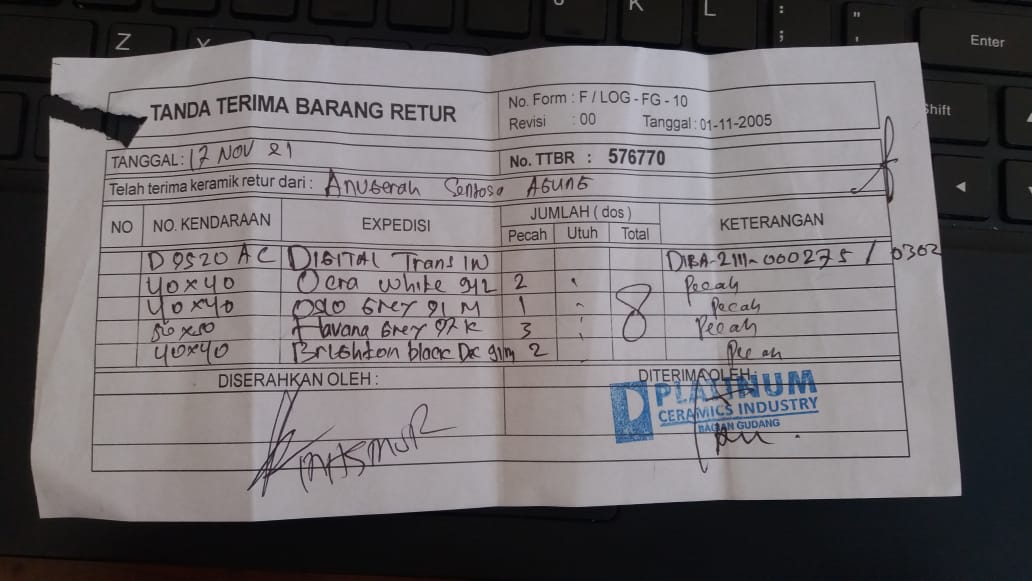 TANDA TERIMA BARANG RETUR
No. Form : F / LOG - FG - 10
Revisi : 00 Tanggal : 01-11-2005
TANGGAL : 17 NOV 21
No. TTBR : 576770
Telah terima keramik retur dari : Anugerah Sentosa AGUNG
NO NO. KENDARAAN EXPEDISI JUMLAH ( dos ) KETERANGAN
Pecah Utuh Total
D 9520 AC DIGITAL Trans IN DIBA-2111-000275 / 0302
40x40 Ocra White 2 Pecah
40x40 Grey 91 M 1 Pecah
Havana Grey 3 Pecah
40x40 Brighton black 2 Pecah
8
DISERAHKAN OLEH : DITERIMA OLEH :
PLATINUM
CERAMICS INDUSTRY
BAGIAN GUDANG
Z
K
L
:
;
"
'
Enter
Shift